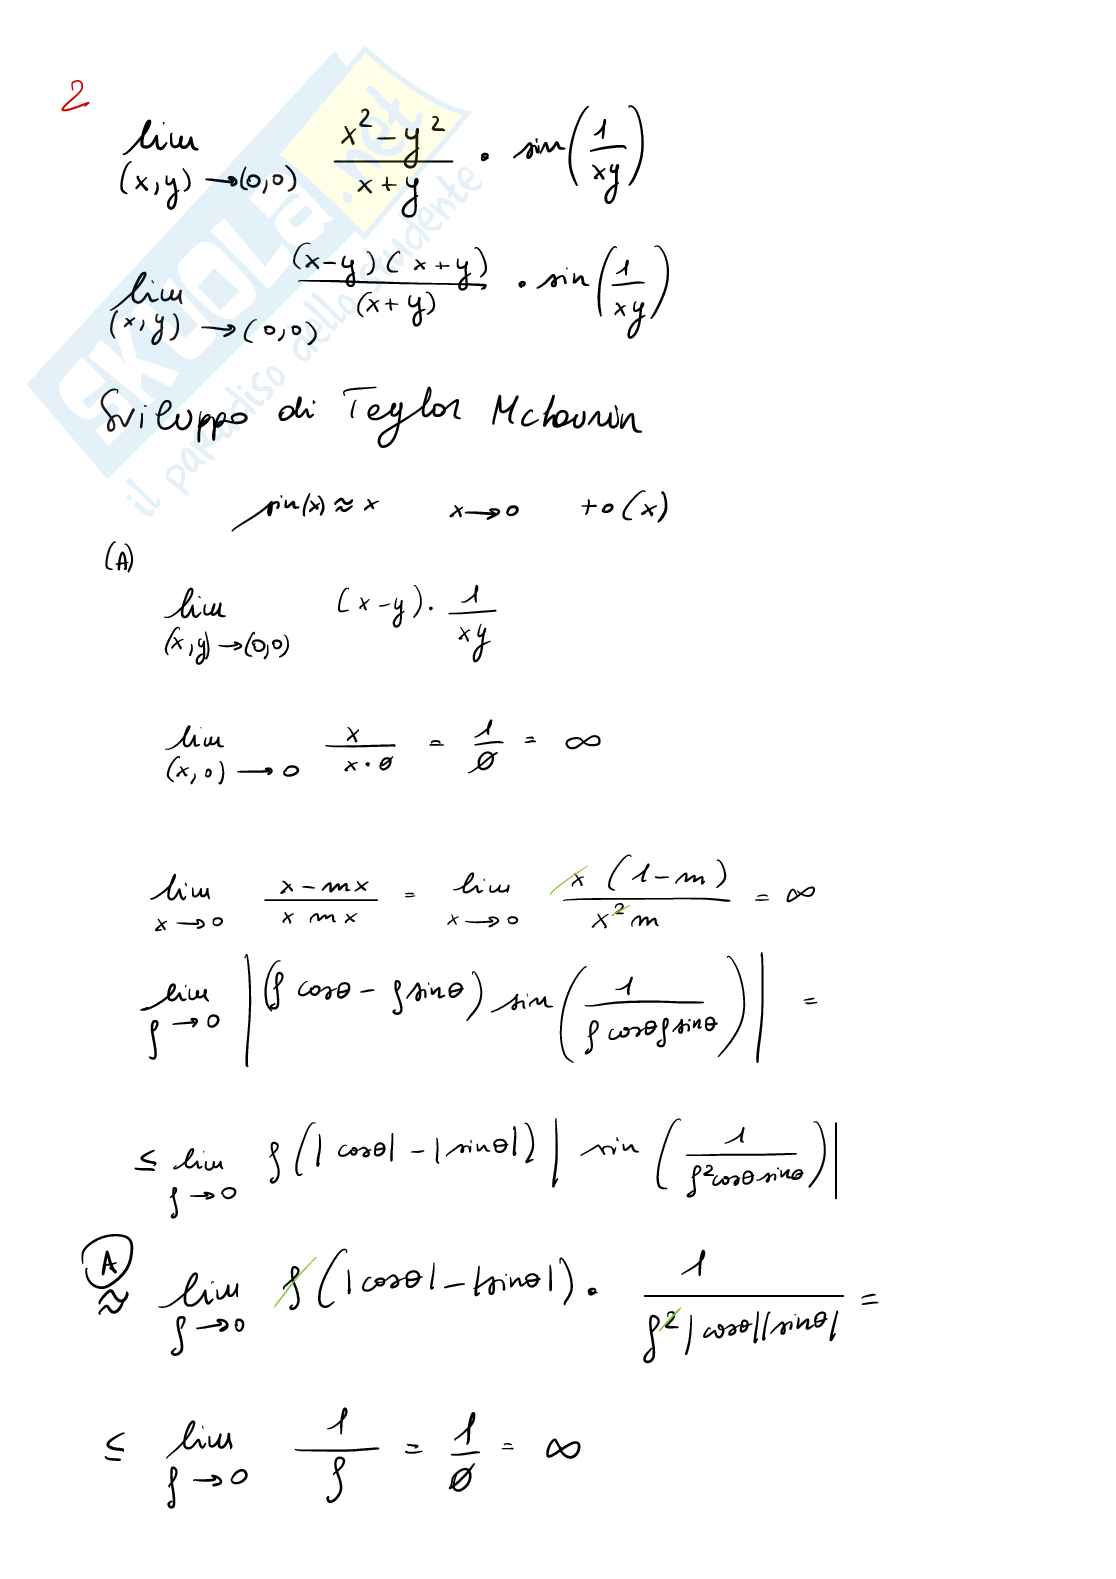 2
lim (x,y)→(0,0) (x² - y²)/(x+y) · sin(1/(xy))
lim (x,y)→(0,0) ((x-y)(x+y))/(x+y) · sin(1/(xy))
Sviluppo di Teylor Mclaurin
sin(x) ≈ x x→0 +o(x)
(A)
lim (x,y)→(0,0) (x-y) · 1/(xy)
lim (x,0)→0 x/(x·0) = 1/0 = ∞
lim x→0 (x-mx)/(x mx) = lim x→0 (x(1-m))/(x²m) = ∞
lim ρ→0 |(ρ cosθ - ρ sinθ) sin(1/(ρ cosθ ρ sinθ))| =
≤ lim ρ→0 ρ(|cosθ| - |sinθ|) |sin(1/(ρ² cosθ sinθ))|
(A) ≈ lim ρ→0 ρ(|cosθ| - |sinθ|) · 1/(ρ²|cosθ||sinθ|) =
≤ lim ρ→0 1/ρ = 1/0 = ∞
SKUOLa.net
il paradiso dello studente